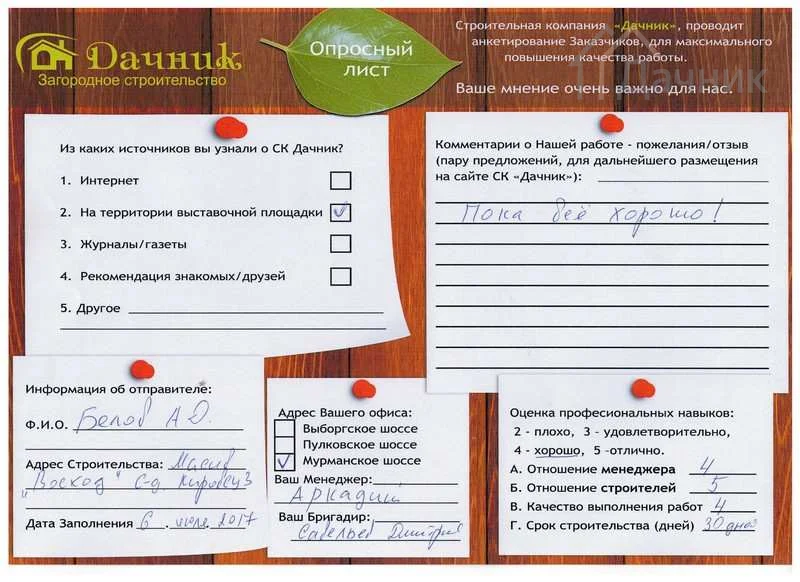 Дачник
Загородное строительство
Опросный
лист
Строительная компания «Дачник», проводит
анкетирование Заказчиков, для максимального
повышения качества работы.
Ваше мнение очень важно для нас.
Дачник
Из каких источников вы узнали о СК Дачник?
1. Интернет
2. На территории выставочной площадки
3. Журналы/газеты
4. Рекомендация знакомых/друзей
5. Другое
Комментарии о Нашей работе - пожелания/отзыв
(пару предложений, для дальнейшего размещения
на сайте СК «Дачник»):
Пока всё хорошо!
Информация об отправителе:
Ф.И.О. Белов А Д.
Адрес Строительства: Масив
"Восход" С-д Кировец 3
Дата Заполнения 6 . июле . 2017
Адрес Вашего офиса:
Выборгское шоссе
Пулковское шоссе
Мурманское шоссе
Ваш Менеджер:
Аркадий
Ваш Бригадир:
Савельев Дмитрий
Оценка професиональных навыков:
2 - плохо, 3 - удовлетворительно,
4 - хорошо, 5 -отлично.
А. Отношение менеджера 4
Б. Отношение строителей 5
В. Качество выполнения работ 4
Г. Срок строительства (дней) 30 дней